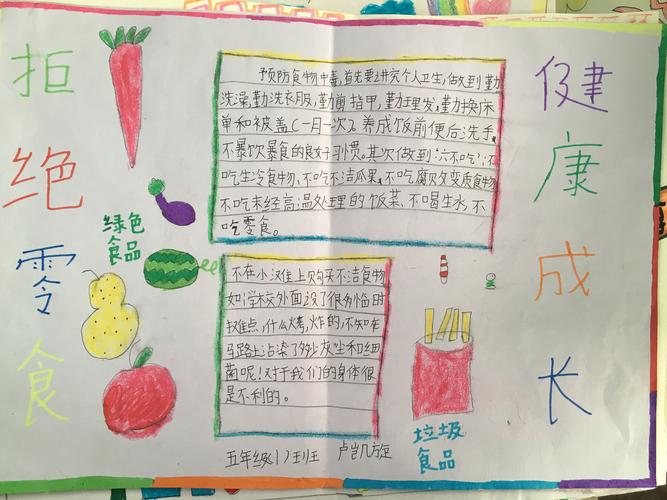 拒绝零食
预防食物中毒,首先要讲究个人卫生,做到勤
洗澡,勤洗衣服,勤剪指甲,勤理发,勤换床
单和被盖(一月一次)。养成饭前便后洗手,
不暴饮暴食的良好习惯。其次做到“六不吃”:不
吃生冷食物,不吃不洁瓜果,不吃腐败变质食物
不吃未经高温处理的饭菜,不喝生水,不
吃零食。
健康成长
绿色
食品
不在小滩上购买不洁食物
如:学校外面设了很多临时
摊点,什么烤,炸的,不知在
马路上沾染了多少灰尘和细
菌呢!对于我们的身体很
是不利的。
垃圾
食品
五年级(7)班